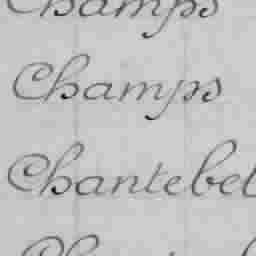 Champs
Champs
Chantebel